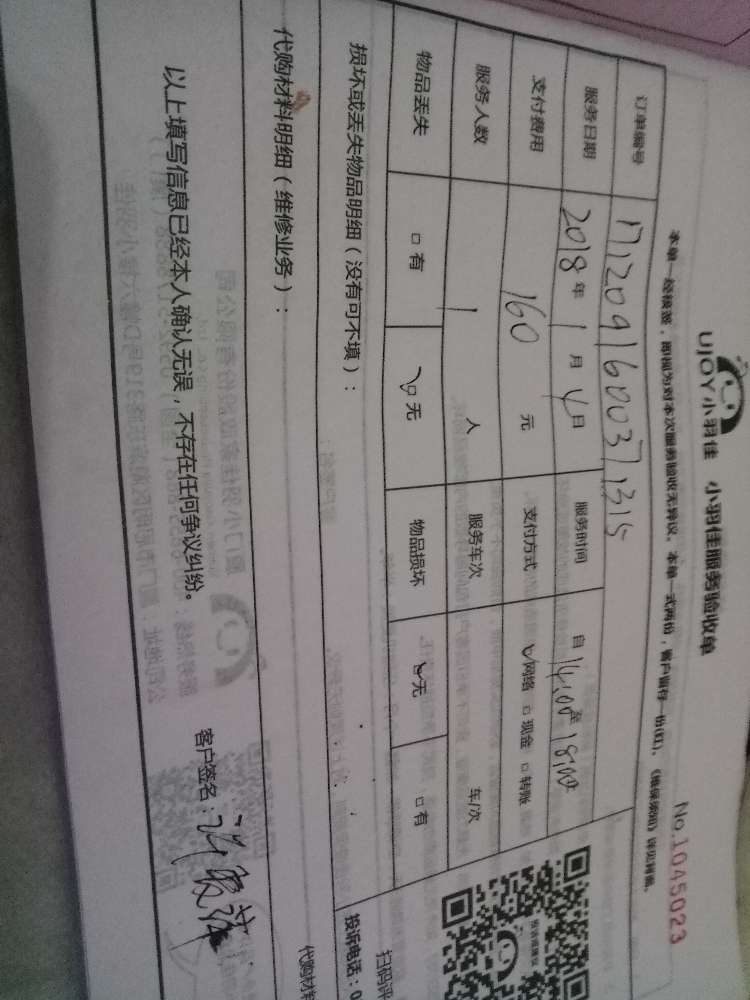 UJOY小羽佳 小羽佳服务验收单
No.1045023
本单一经接签，即视为对本次服务验收无异议。本单一式两份，客户留存一份(红)。《维保须知》详见背面。
订单编号 1712091600371315
服务日期 2018年1月4日 服务时间 自14:00至18:00
支付费用 160元 支付方式 网络 □现金 □转账
服务人数 1人 服务车次 车/次
物品丢失 □有 □无 物品损坏 □无 □有
损坏或丢失物品明细（没有可不填）：
代购材料明细（维修业务）：
以上填写信息已经本人确认无误，不存在任何争议纠纷。
客户签名：
扫码评
投诉电话：0
代购材料